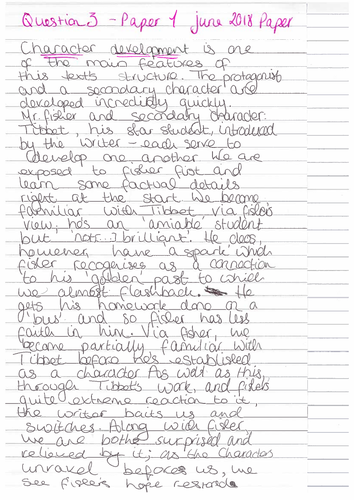 Question 3 - Paper 1 june 2018 Paper
Character development is one
of the main features of
this text's structure. The protagonist
and a secondary character are
developed incredibly quickly.
Mr. fisher and secondary character
Tibbet, his star student, introduced
by the writer - each serve to
develop one another. We are
exposed to fisher first and
learn some factual details
right at the start. We become
familiar with Tibbet via fisher's
view, he's an 'amiable' student
but 'not [...] brilliant'. He does,
however, have a 'spark' which
fisher recognises as a connection
to his 'golden' past to which
we almost flashback. He
gets his homework done on a
'bus' and so fisher has less
faith in him. Via fisher, we
become partially familiar with
Tibbet before he's established
as a character. As well as this,
through Tibbet's work, and fisher's
quite extreme reaction to it,
the writer baits us and
switches. Along with fisher
we are both surprised and
relieved by it; as the characters
unravel before us, we
see fisher's hope